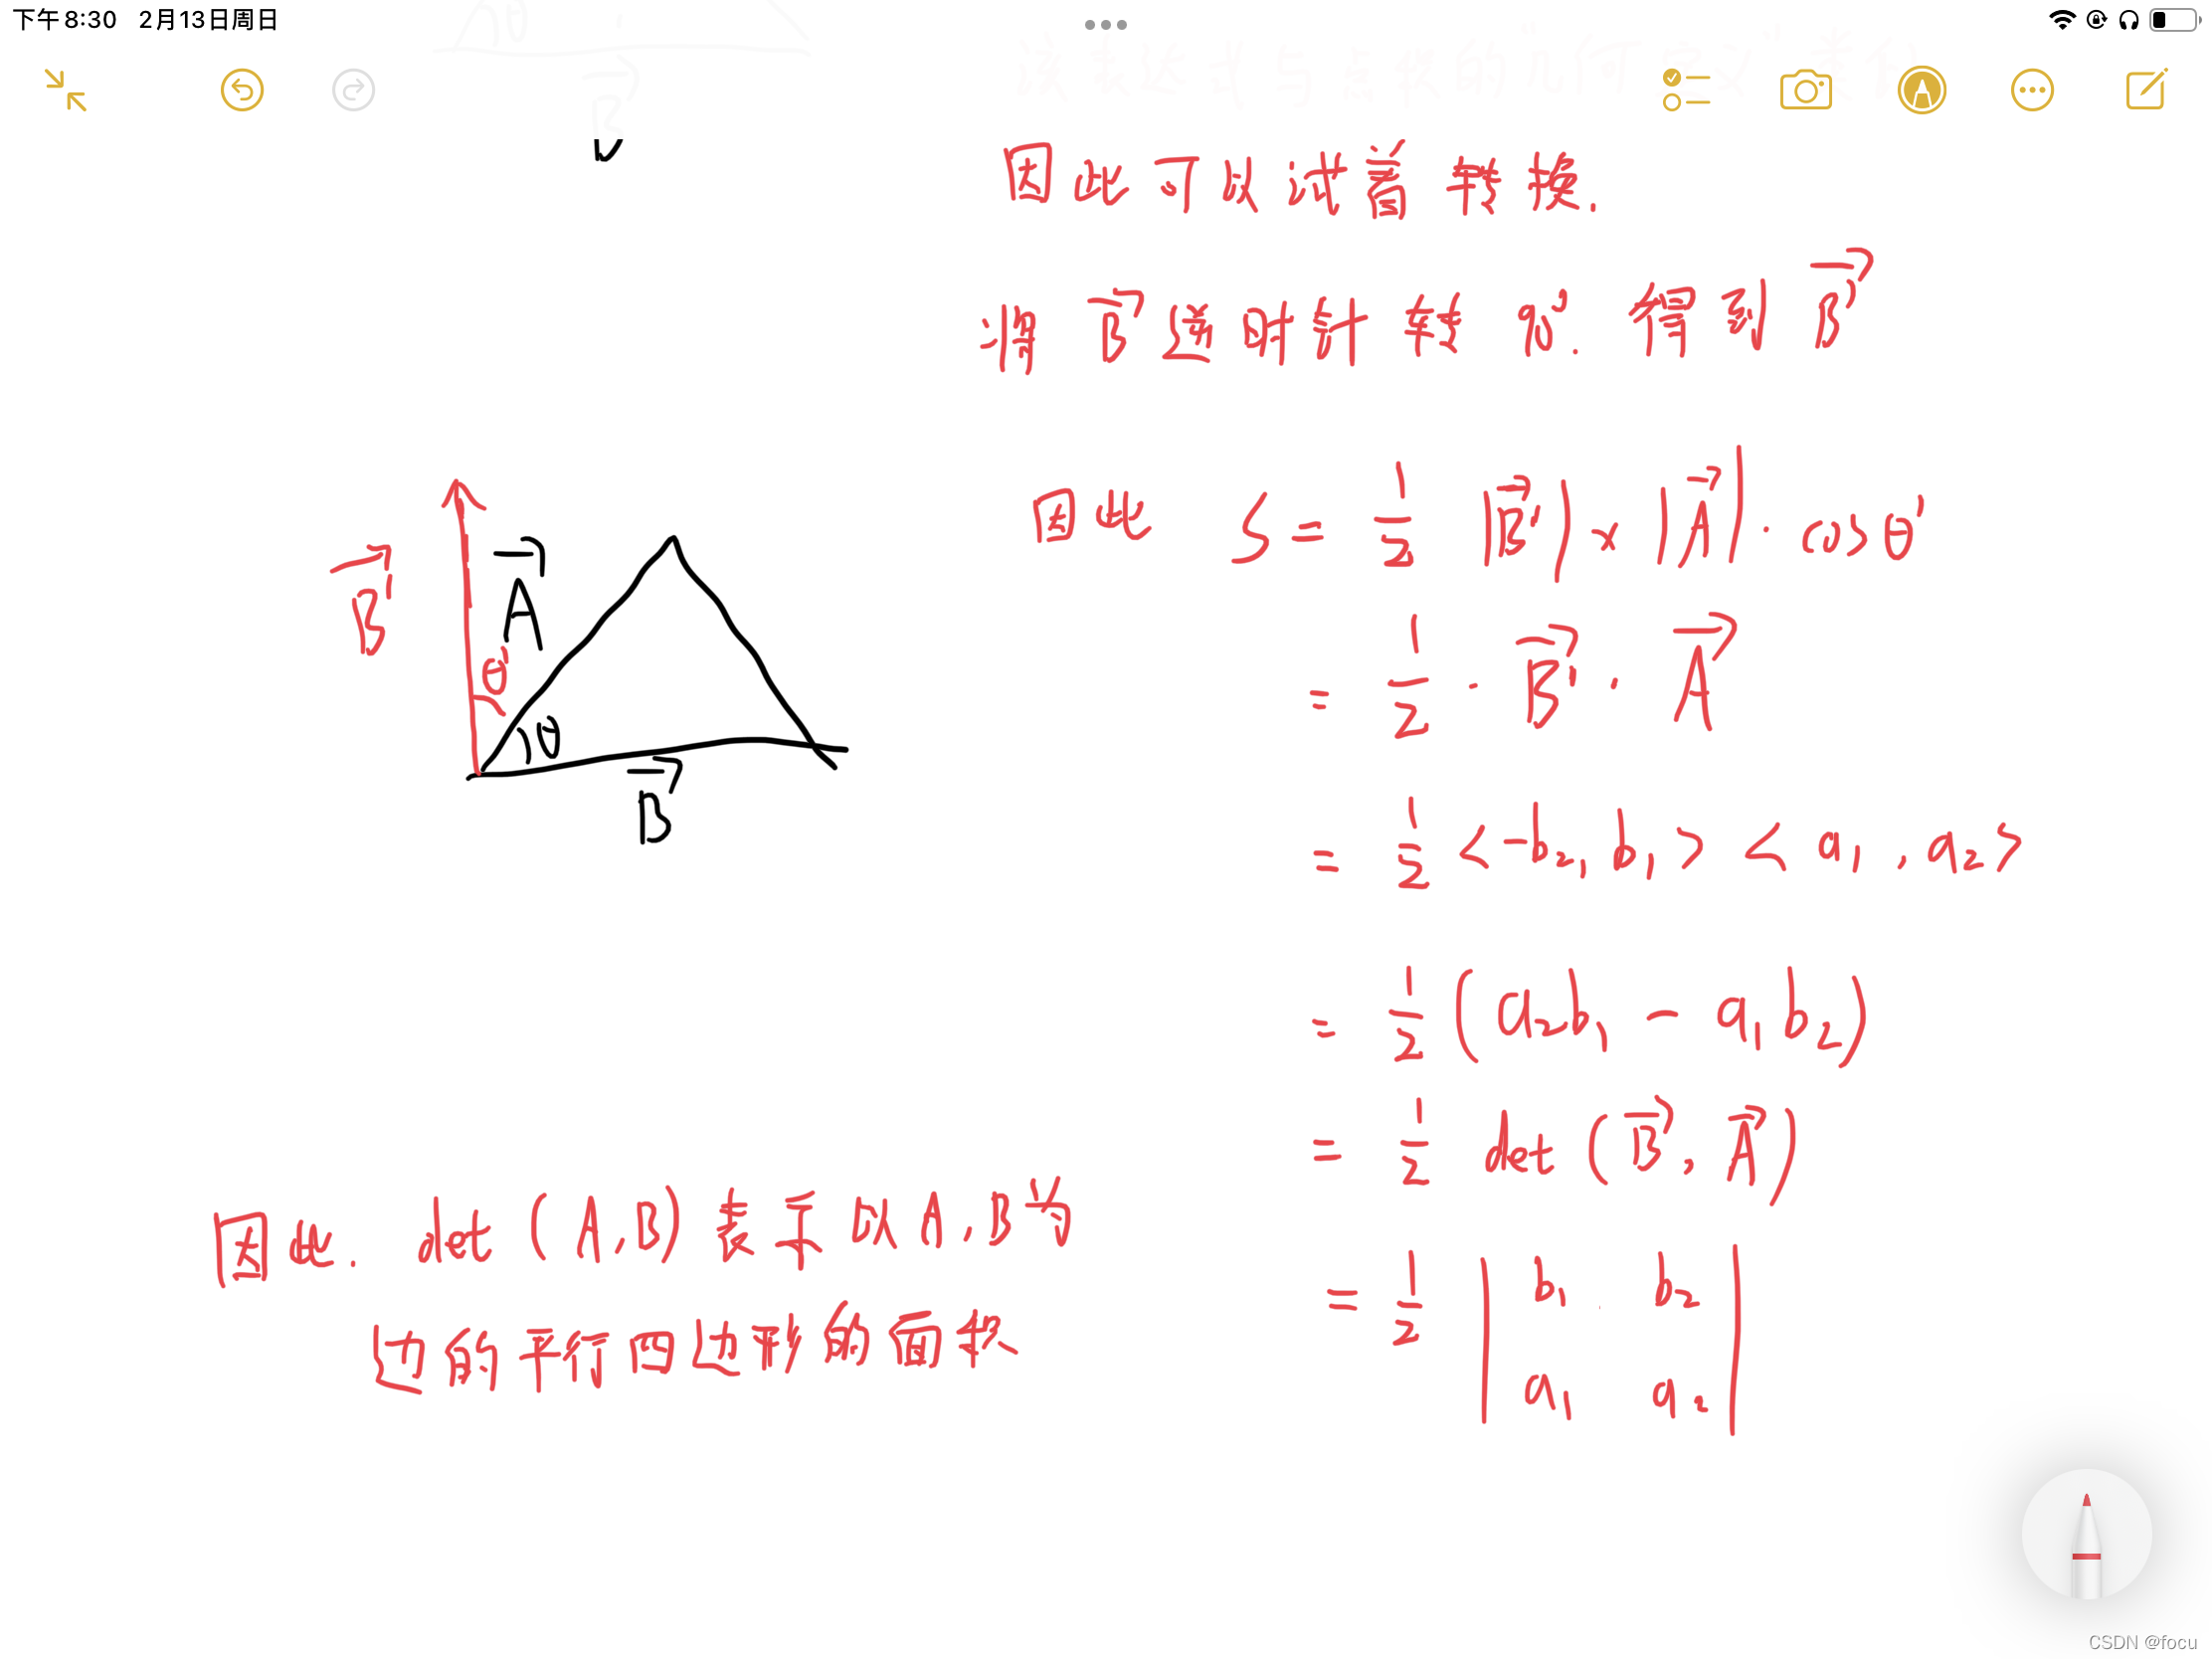 下午8:30 2月13日周日
该表达式与点积的"几何定义"类似
Aθ
B
因此可以试着转换.
将 B 逆时针转 90°. 得到 B'
因此 S = 1/2 |B'| × |A| · cosθ'
= 1/2 · B' · A
= 1/2 <-b₂, b₁> <a₁, a₂>
= 1/2 (a₂b₁ - a₁b₂)
= 1/2 det (B, A)
= 1/2 | b₁ b₂
a₁ a₂ |
B'
A
θ'
θ
B
因此. det (A, B) 表示以 A, B 为
边的平行四边形的面积
CSDN @focu